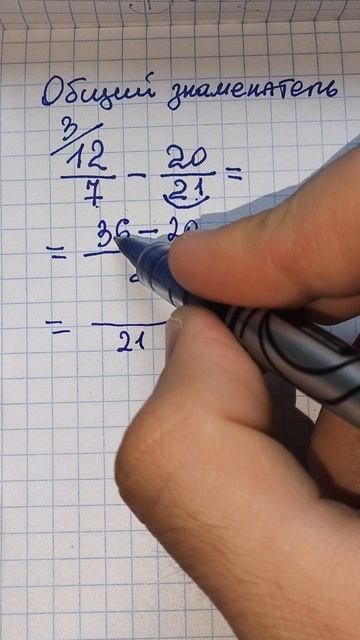 Общий знаменатель
3/
12/7 - 20/21 =
= 36 - 20
= /21